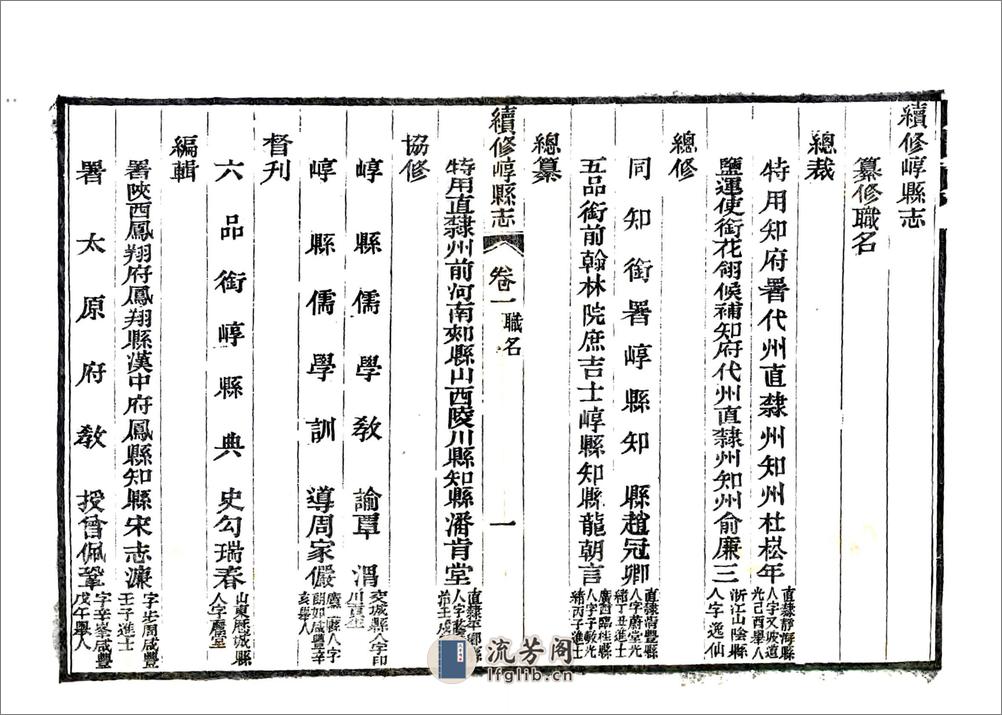 續修崞縣志
纂修職名
總裁
特用知府署代州直隸州知州杜崧年 直隸靜海縣人字又坡道光己酉舉人
鹽運使銜花翎候補知府代州直隸州知州俞廉三 浙江山陰縣人字逸仙
總修
同知銜署崞縣知縣趙冠卿 直隸高豐縣人字蔚堂光緒丁丑進士
五品銜前翰林院庶吉士崞縣知縣龍朝言 廣西臨桂縣人字子敏光緒丙子進士
總纂
續修崞縣志 卷一 職名 一
特用直隸州前河南郟縣山西陵川縣知縣潘肯堂 直隸平鄉
協修
崞縣儒學教諭覃渭 交城縣人字印川
崞縣儒學訓導周家儼 人字朗加咸豐辛亥舉人
督刊
六品銜崞縣典史勾瑞春 山東歷城縣人字
編輯
署陝西鳳翔府鳳翔縣漢中府鳳縣知縣宋志濂 字步周咸豐壬子進士
署太原府教授曾佩鞏 字辛峯咸豐戊午舉人
流芳阁
lfglib.cn